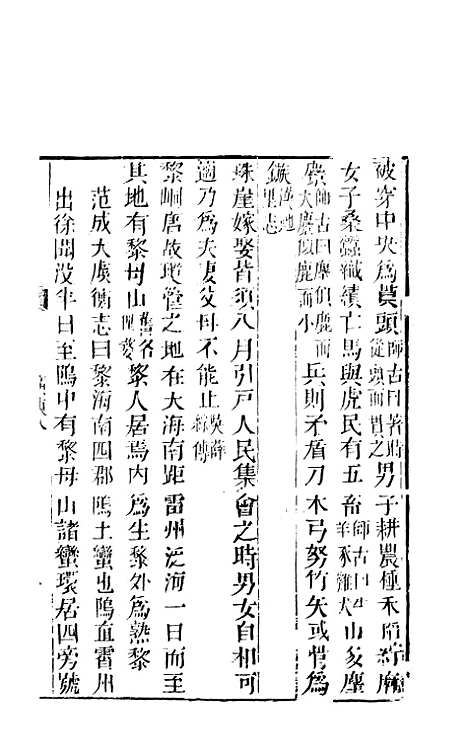 被穿中央爲貫頭師古曰著時從頭而貫之男子耕農種禾稻紵麻
女子桑蠶織績亡馬與虎民有五畜師古曰牛羊豕雞犬山多麈
麖師古曰麈似鹿而大麖似鹿而小兵則矛盾刀木弓弩竹矢或骨爲
鏃漢地里志
珠崖嫁娶皆須八月引戶人民集會之時男女自相可
適乃爲夫妻父母不能止吳薛綜傳
黎峒唐故瓊管之地在大海南距雷州泛海一日而至
其地有黎母山舊名黎婺黎人居焉内爲生黎外爲熟黎
范成大虞衡志曰黎海南四郡隝土蠻也隝直雷州
出徐聞没半日至隝中有黎母山諸蠻環居四旁號